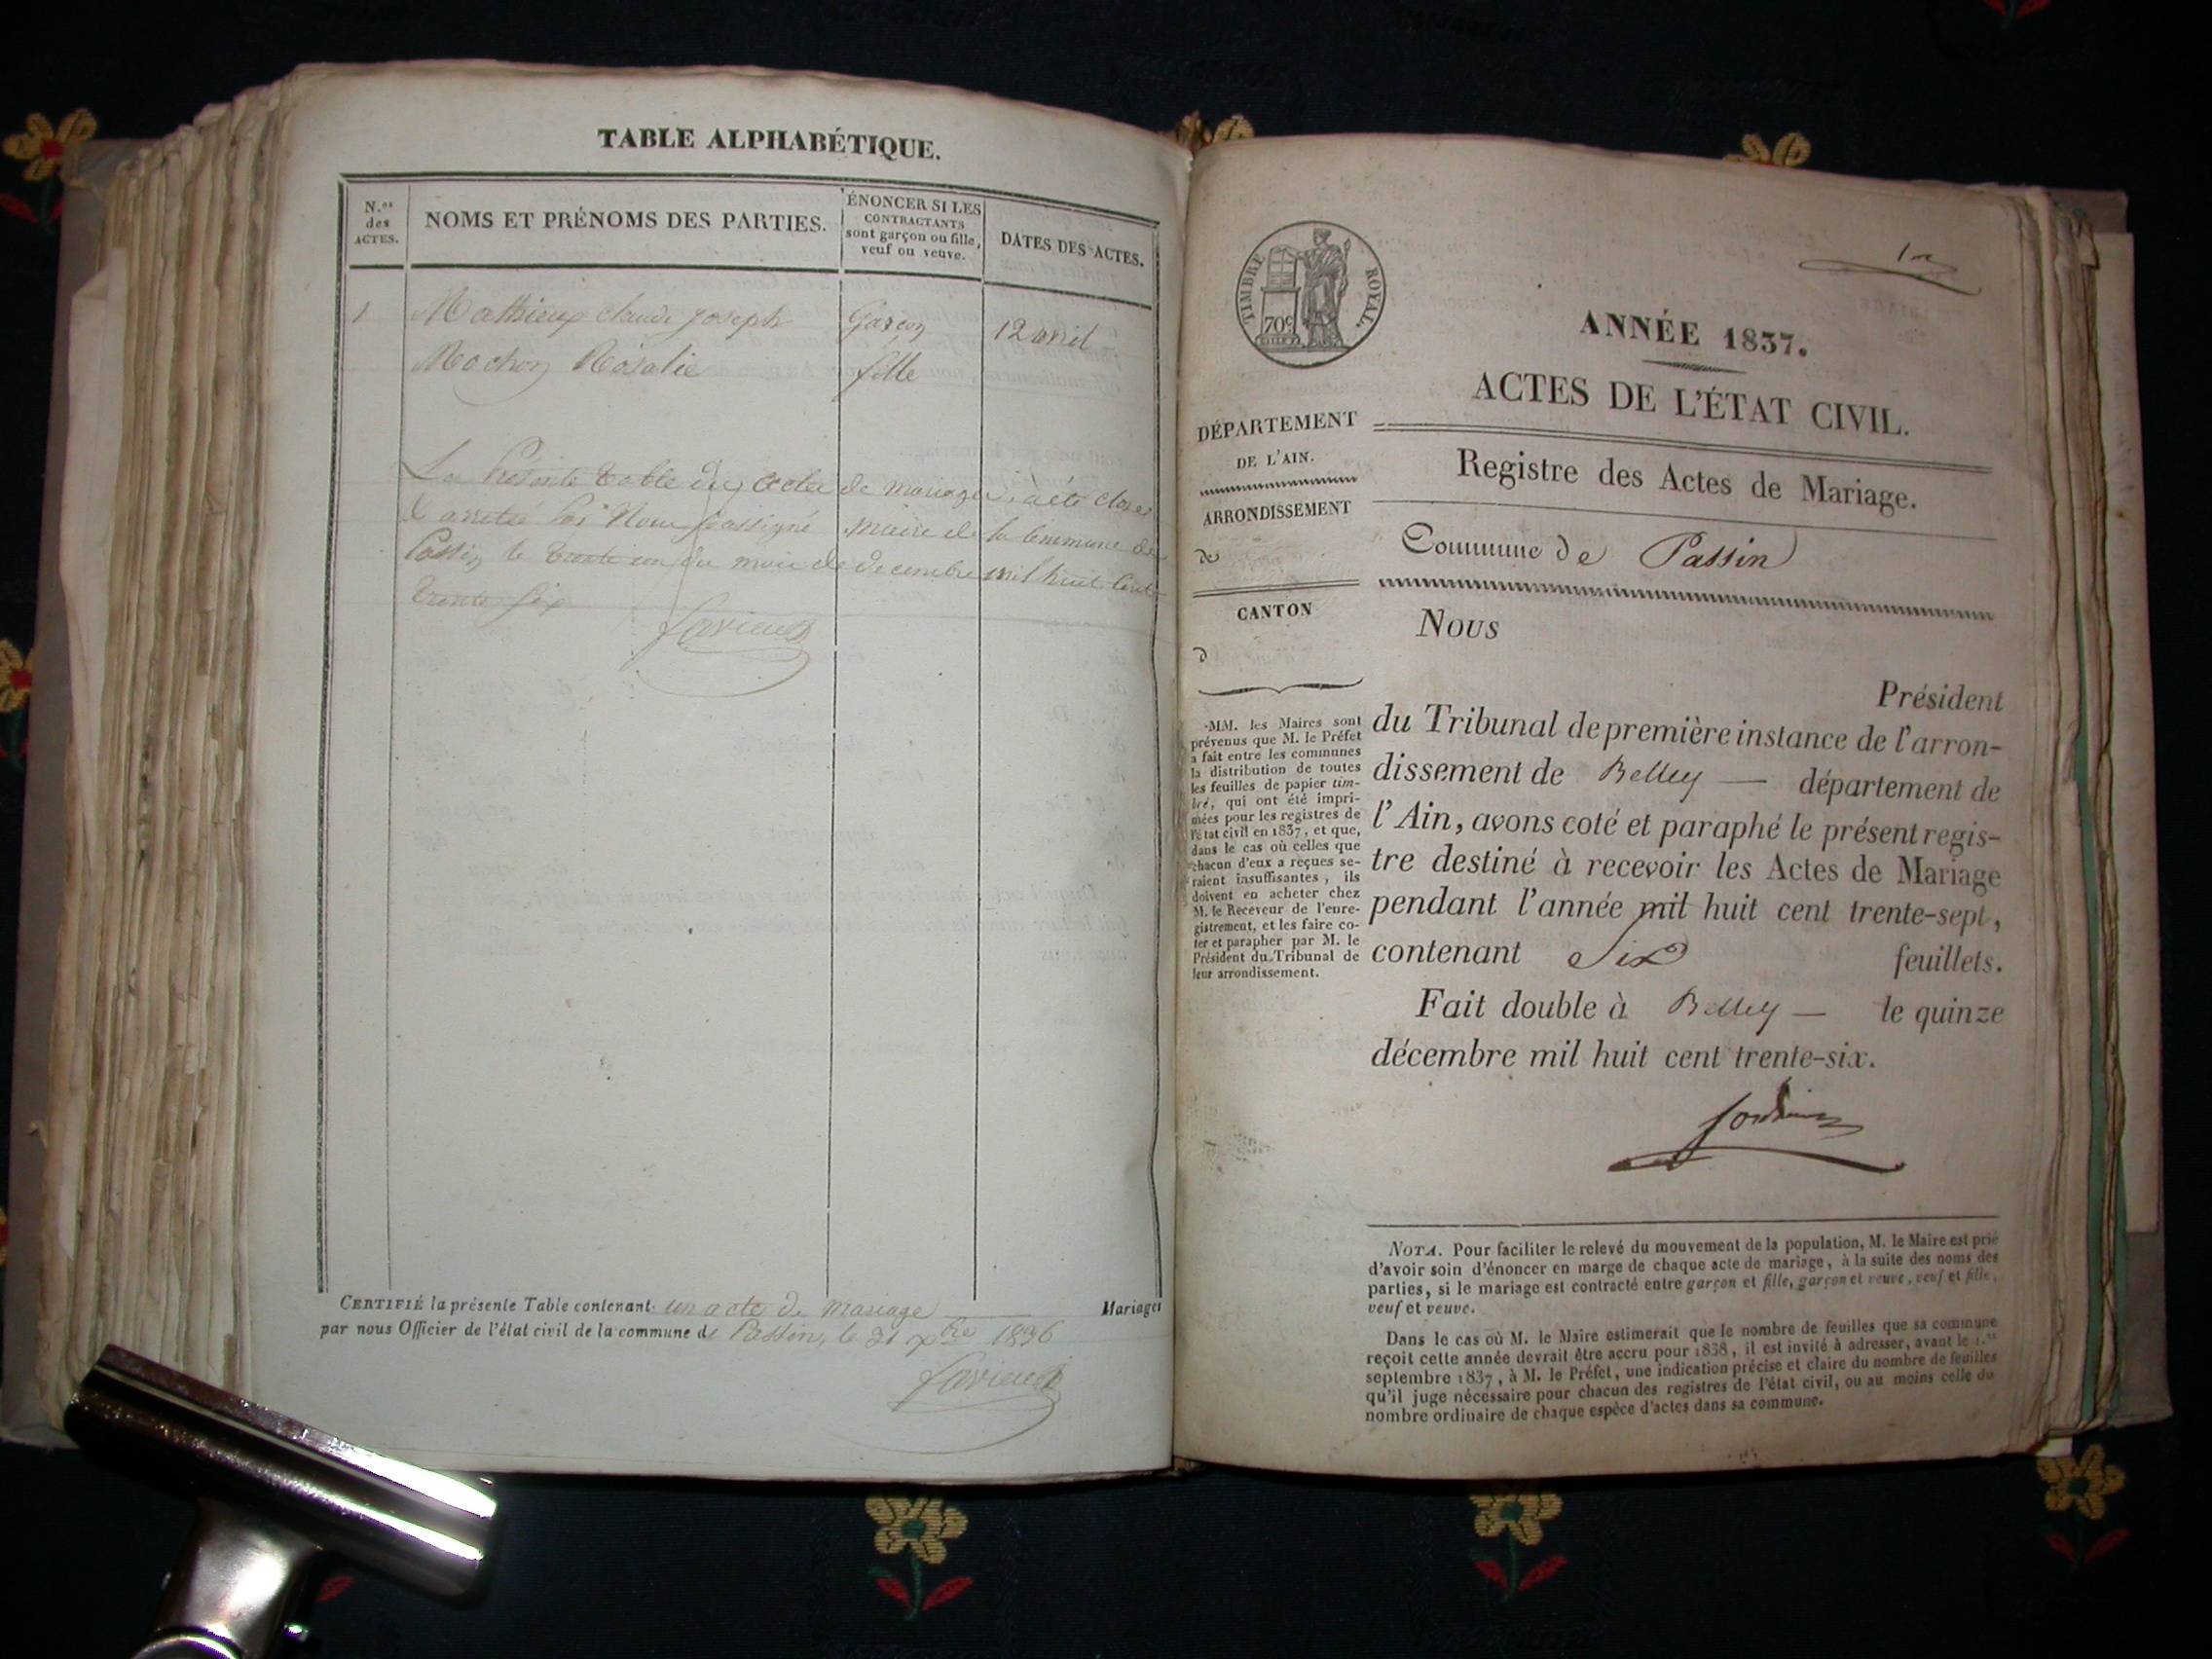 TABLE ALPHABÉTIQUE.
N.os des ACTES.
NOMS ET PRÉNOMS DES PARTIES.
ÉNONCER SI LES
CONTRACTANTS
sont garçon ou fille,
veuf ou veuve.
DATES DES ACTES.
1 Mathieux Claude Joseph Garçon 12 avril
Mochon Rosalie fille
La présente table des actes de mariages, à été close
& arretée par Nous soussigné maire de la commune de
Passin le trente un du mois de decembre mil huit cent
trente six
CERTIFIÉ la présente Table contenant un acte de mariage Mariages
par nous Officier de l'état civil de la commune de Passin, le 31 xbre 1836
1er
TIMBRE ROYAL.
70c
ANNÉE 1837.
ACTES DE L'ÉTAT CIVIL.
DÉPARTEMENT
DE L'AIN.
ARRONDISSEMENT
de
CANTON
d
MM. les Maires sont
prévenus que M. le Préfet
a fait entre les communes
la distribution de toutes
les feuilles de papier tim-
bré, qui ont été impri-
mées pour les registres de
l'état civil en 1837, et que,
dans le cas où celles que
chacun d'eux a reçues se-
raient insuffisantes, ils
doivent en acheter chez
M. le Receveur de l'enre-
gistrement, et les faire co-
ter et parapher par M. le
Président du Tribunal de
leur arrondissement.
Registre des Actes de Mariage.
Commune de Passin
Nous
Président
du Tribunal de première instance de l'arron-
dissement de Belley — département de
l'Ain, avons coté et paraphé le présent regis-
tre destiné à recevoir les Actes de Mariage
pendant l'année mil huit cent trente-sept,
contenant Six feuillets.
Fait double à Belley — le quinze
décembre mil huit cent trente-six.
NOTA. Pour faciliter le relevé du mouvement de la population, M. le Maire est prié
d'avoir soin d'énoncer en marge de chaque acte de mariage, à la suite des noms des
parties, si le mariage est contracté entre garçon et fille, garçon et veuve, veuf et fille,
veuf et veuve.
Dans le cas où M. le Maire estimerait que le nombre de feuilles que sa commune
reçoit cette année devrait être accru pour 1838, il est invité à adresser, avant le 1.er
septembre 1837, à M. le Préfet, une indication précise et claire du nombre de feuilles
qu'il juge nécessaire pour chacun des registres de l'état civil, ou au moins celle du
nombre ordinaire de chaque espèce d'actes dans sa commune.